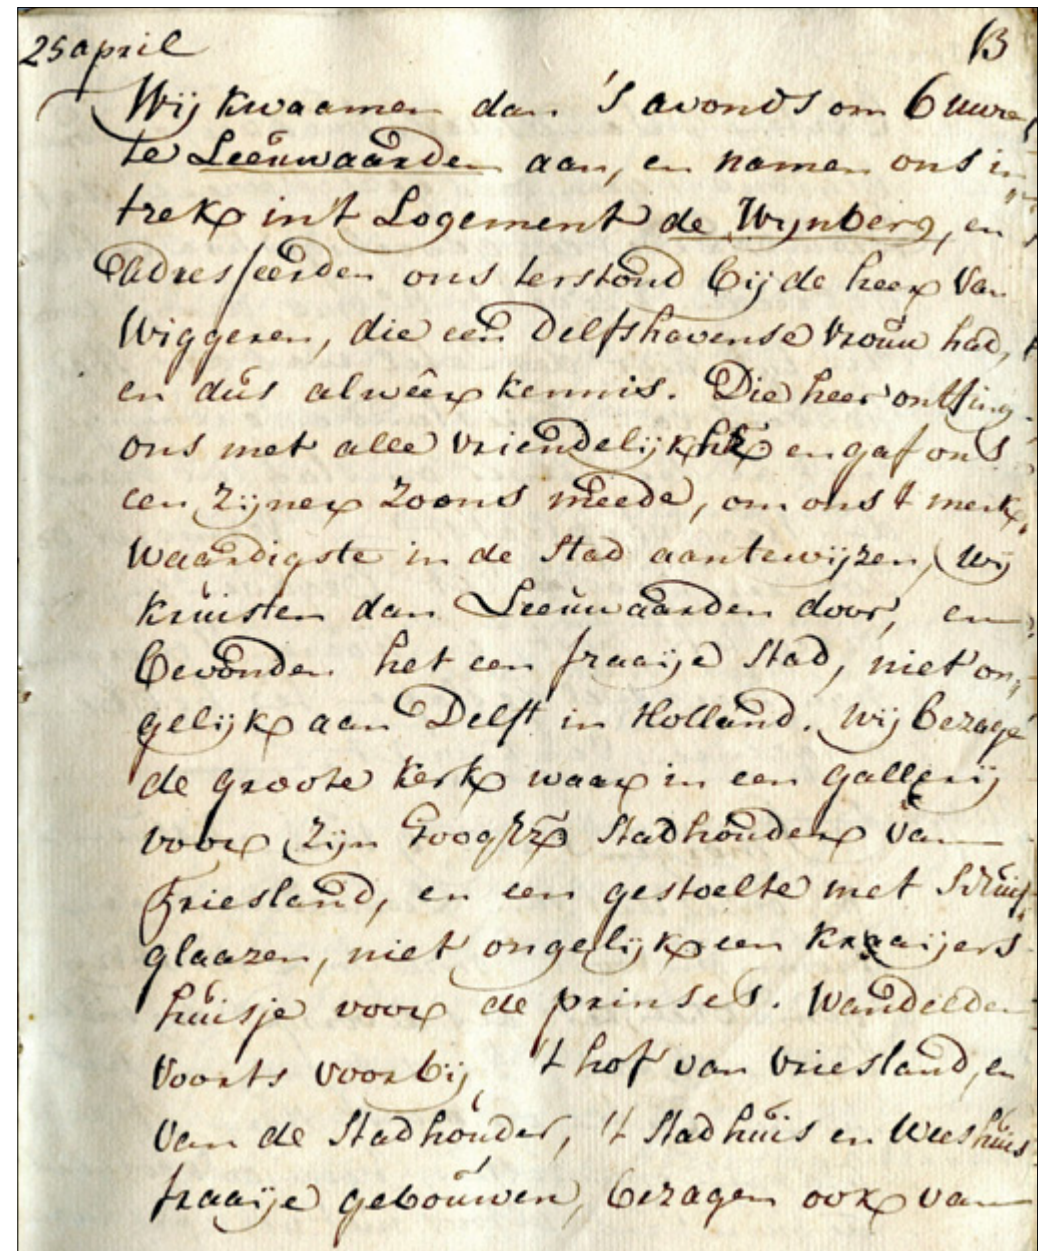 25 april 13
Wij kwaamen dan 's avonds om 6 uuren
te Leeuwaarden aan, en namen ons in
trek in't Logement de Wijnberg, en
adresseerden ons terstond bij de heer van
Wiggeren, die een Delfshavense vrouw had,
en dus alweêr kennis. Die heer ontfing
ons met alle vriendelijkht en gaf ons
een zijner zoons meede, om ons 't merk
waardigste in de Stad aantewijzen, wij
kruisten dan Leeuwaarden door, en
bevonden het een fraaije Stad, niet on
gelijk aan Delft in Holland. wij bezage
de groote kerk waar in een gallerij
voor zijn Stadhouder van
Friesland, en een gestoelte met Schuif
glaazen, niet ongelijk een kraaijers
huisje voor de prinses. Wandelden
voorts voorbij 't hof van vriesland, en
van de Stadhouder, 't Stadhuis en Weeshuis
fraaije gebouwen, bezagen ook van